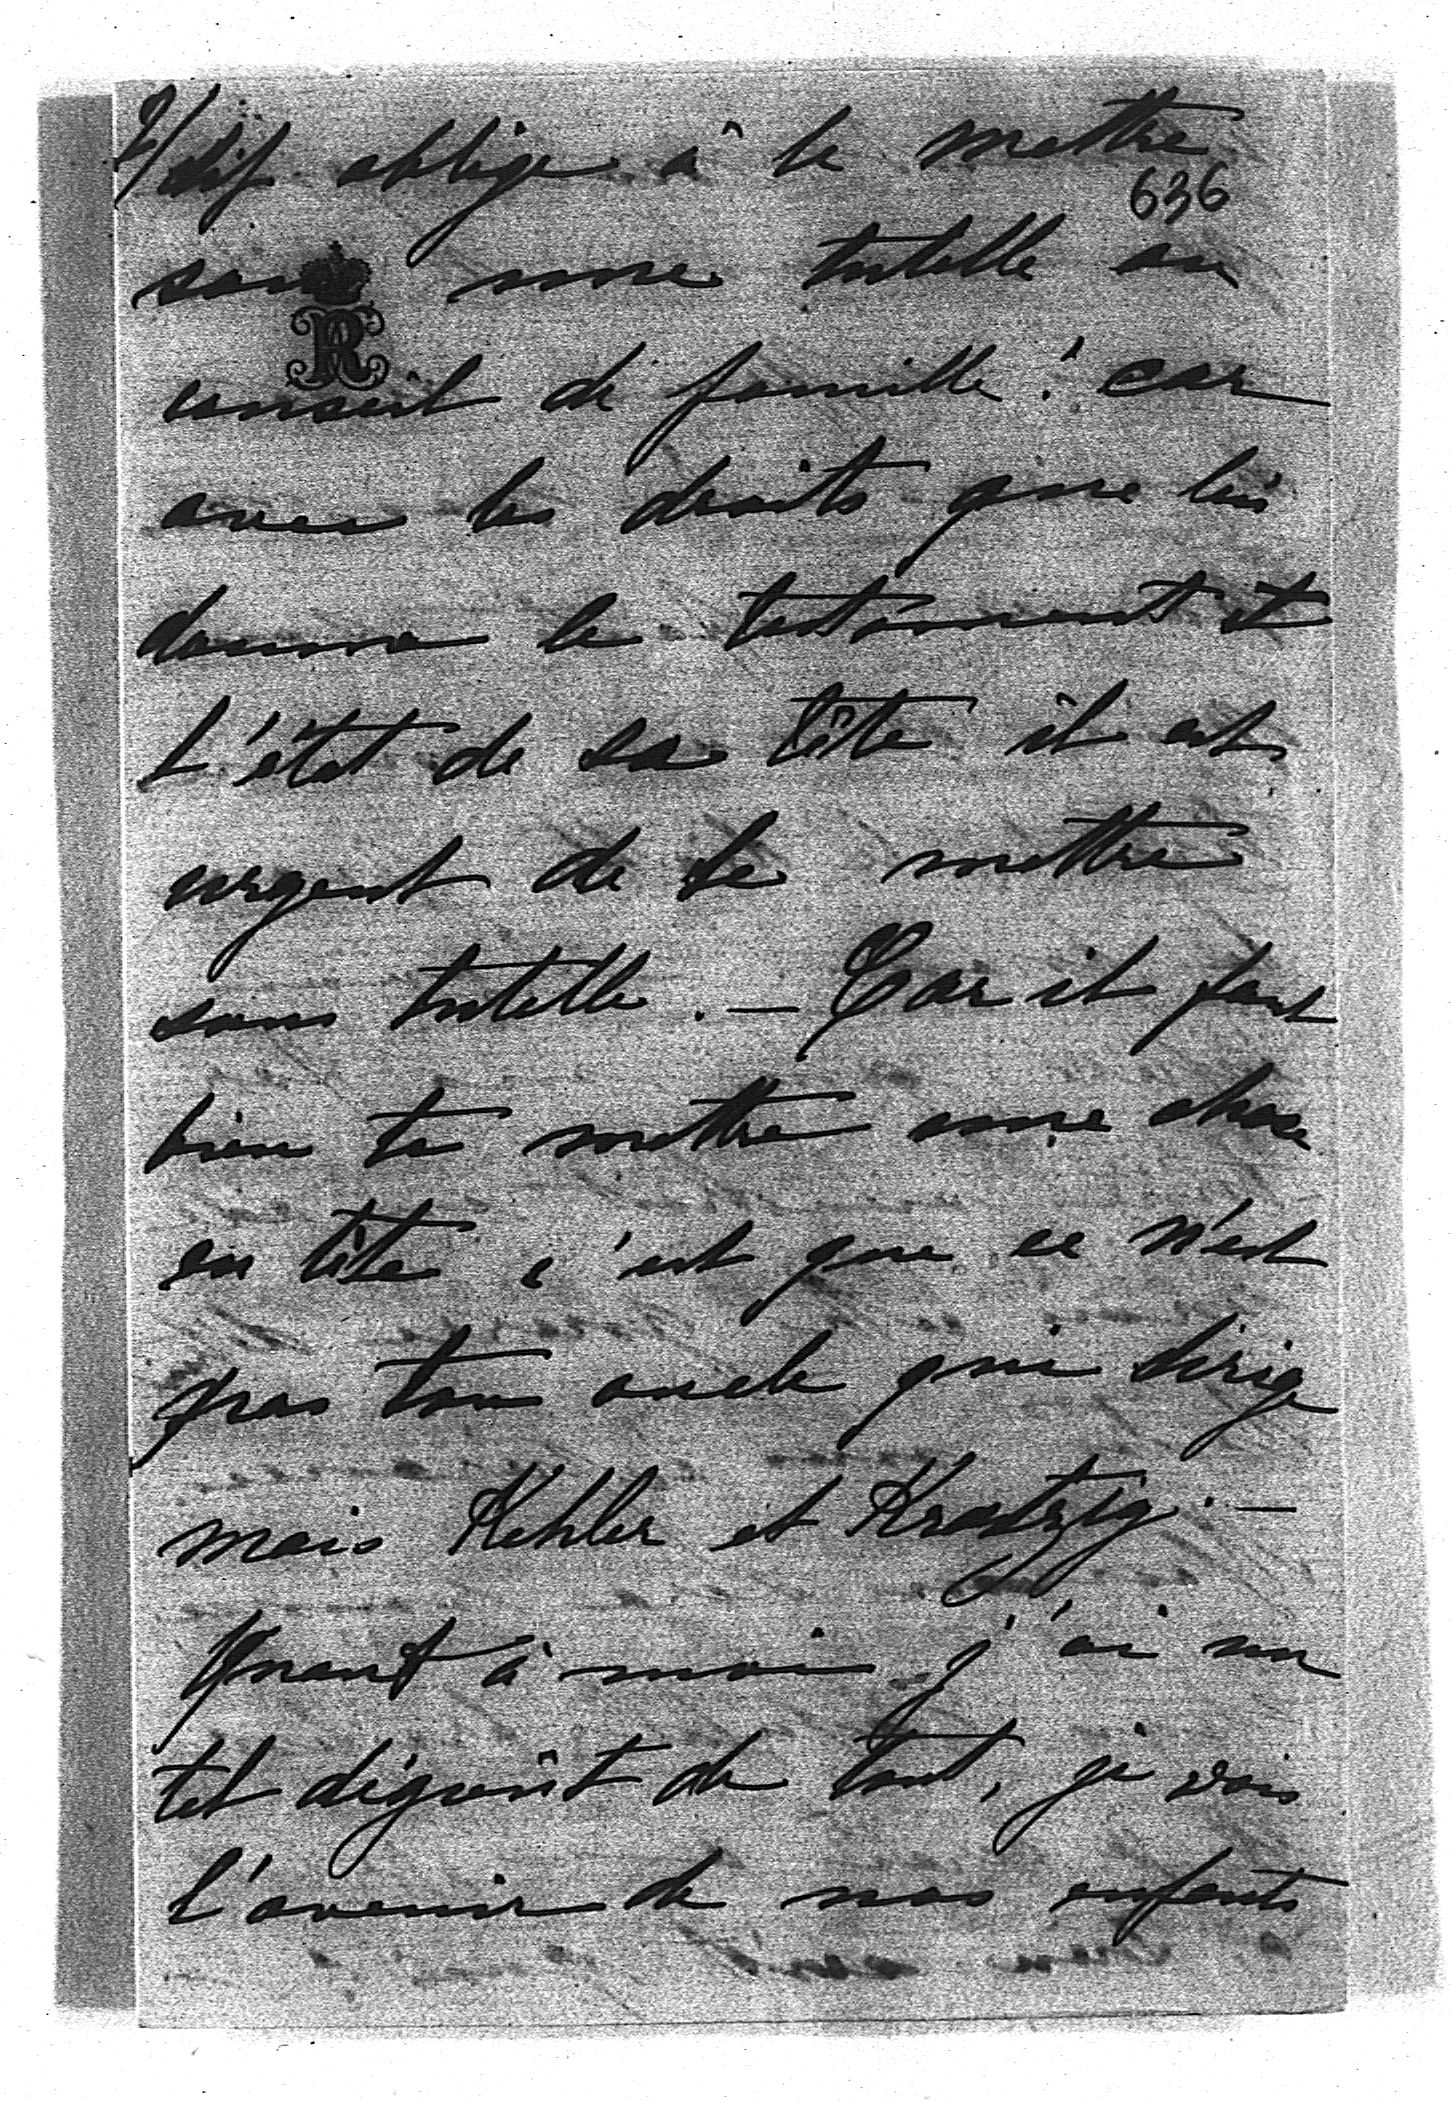 2/ dif. oblige à le mettre
636
sous une tutelle ou
conseil de famille! car
avec les droits que lui
donne le testament et
l'état de sa tête il est
urgent de le mettre
sous tutelle. — Car il faut
bien te mettre une chose
en tête c'est que ce n'est
pas ton oncle qui dirige
mais Kehler et Kratzig. —
Quant à moi j'ai un
tel dégoût de tout, je vois
l'avenir de nos enfants